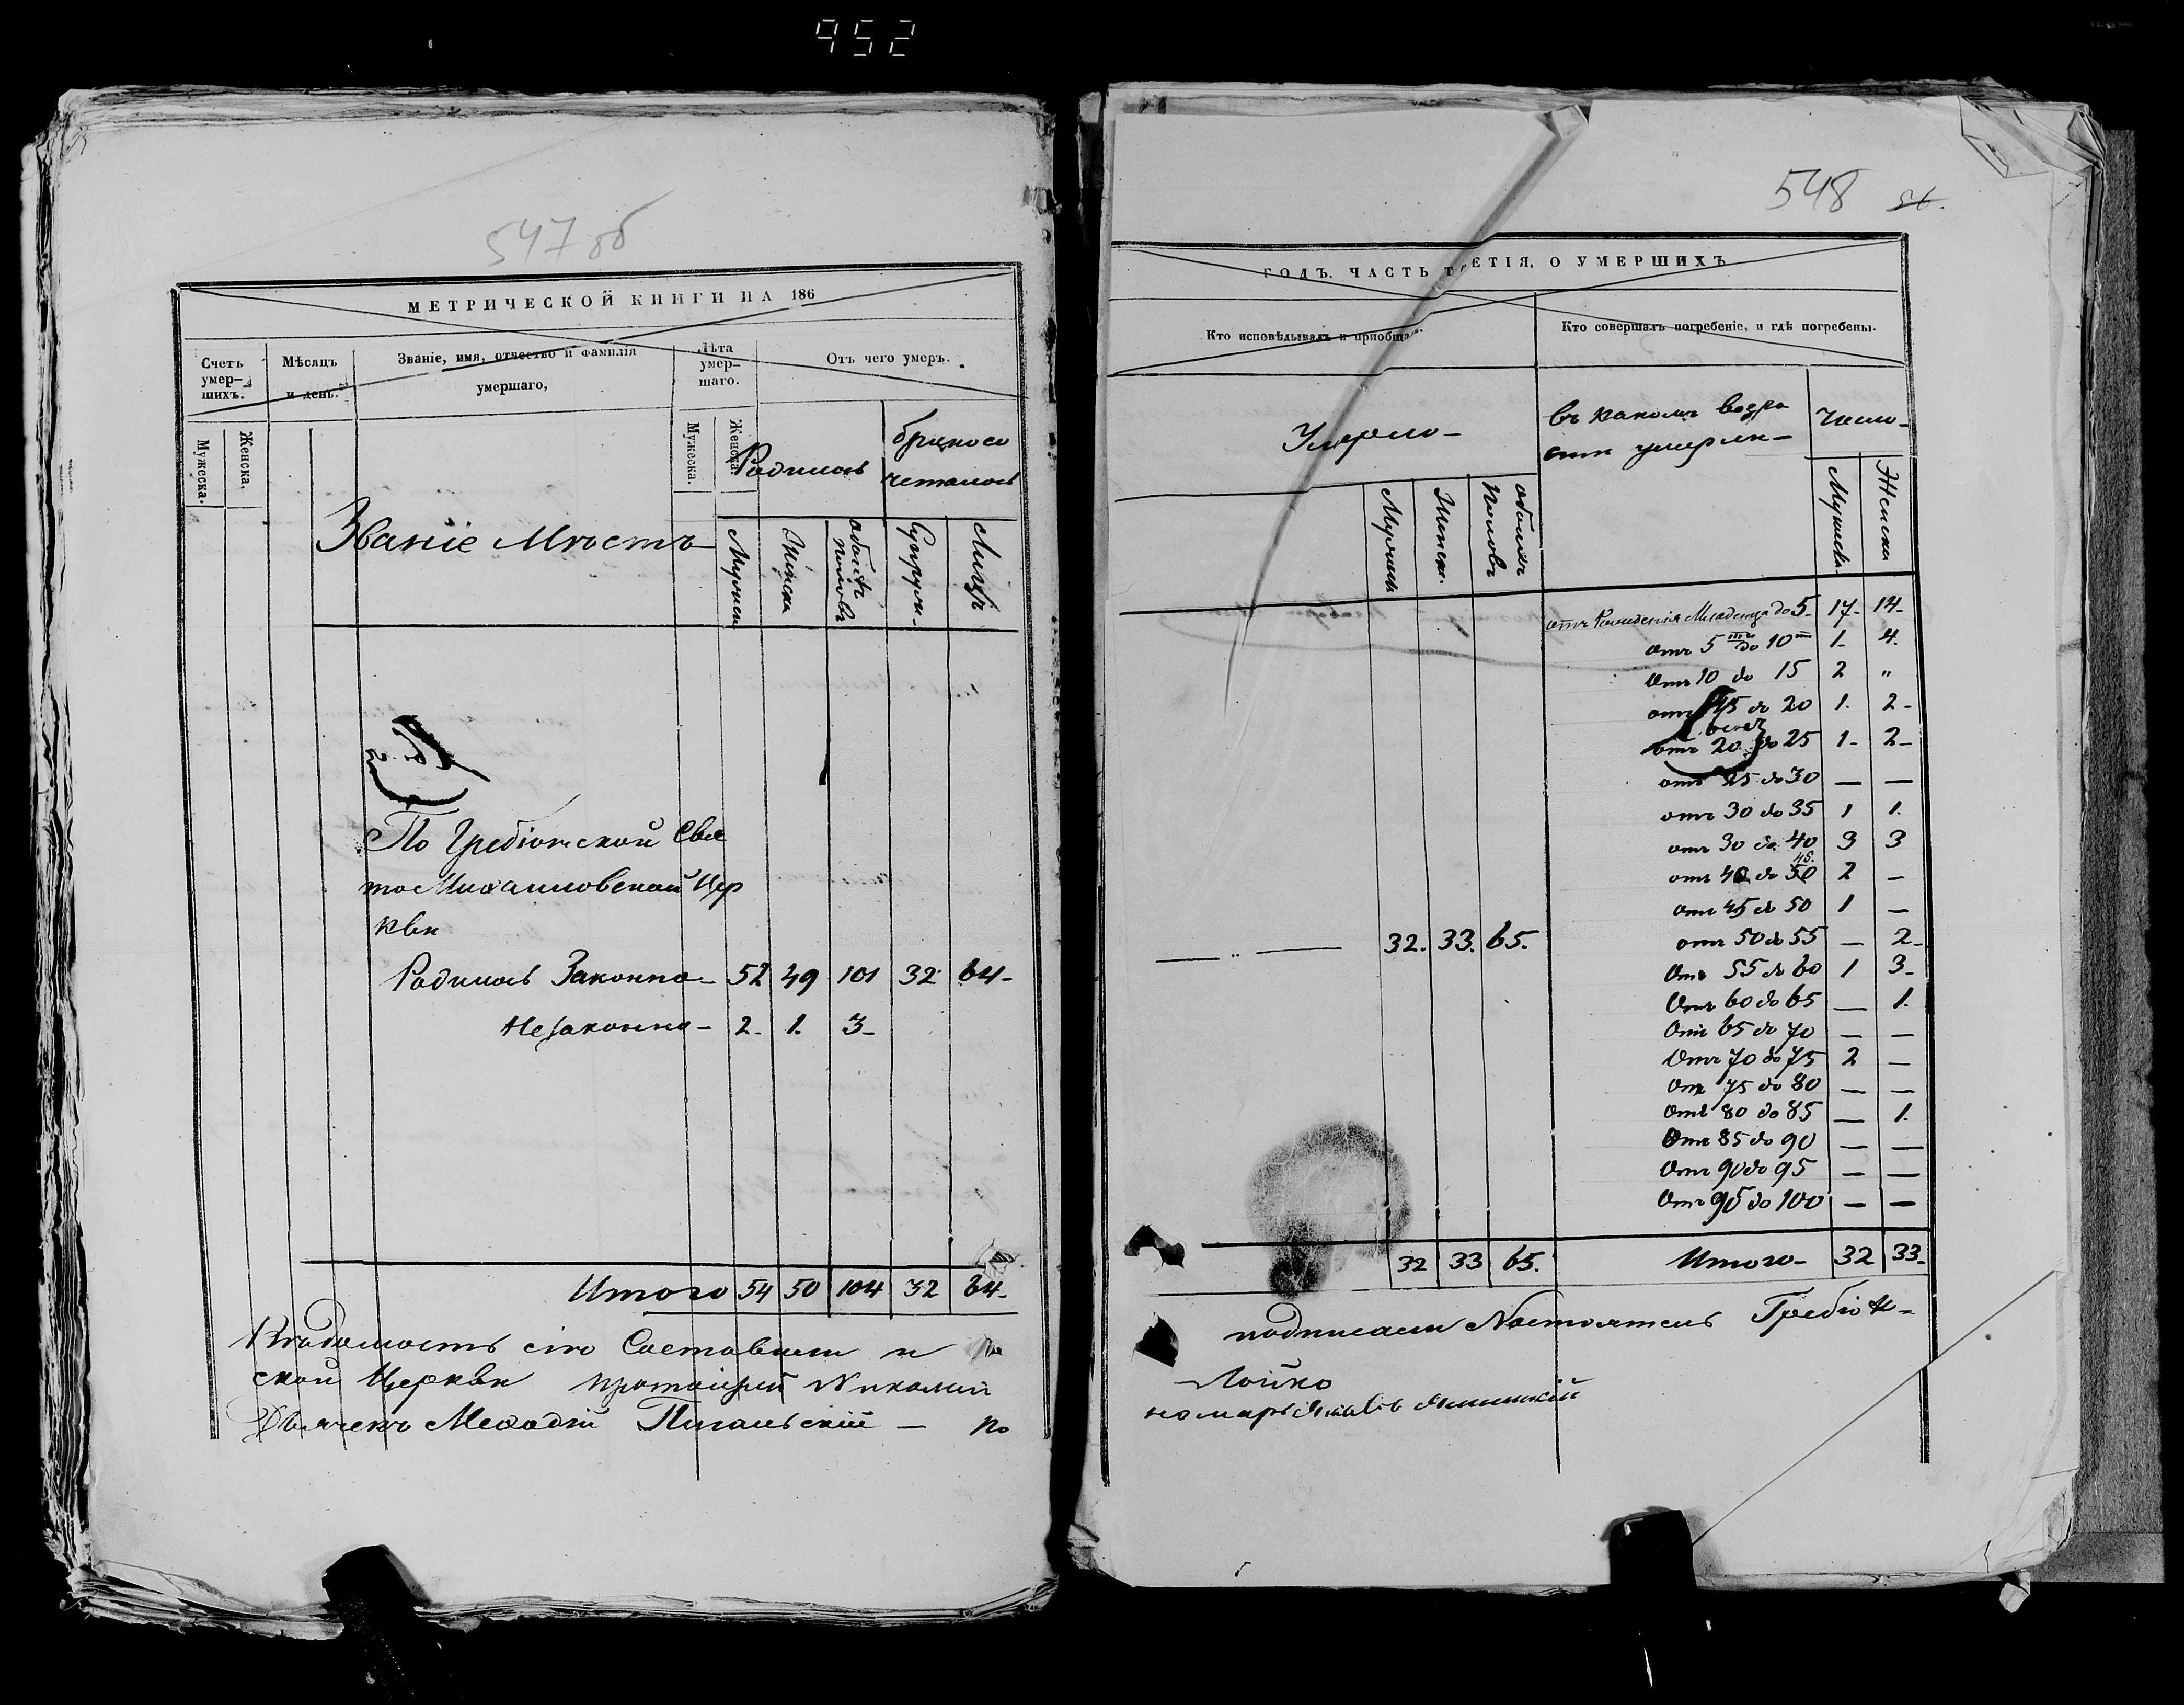 952
547 об
МЕТРИЧЕСКОЙ КНИГИ НА 186
Счетъ умер-шихъ.
Мѣсяцъ и день.
Званіе, имя, отчество и фамилія умершаго,
Лѣта умер-шаго.
Отъ чего умеръ.
Мужеска.
Женска.
Мужеска.
Женска.
Званіе Мѣстъ
Родилось
бракосо
четалось
Мужеска
Женска
обоихъ половъ
Супруж-
Лицъ
По Гребіонской Свя
то Михаиловской Цер
кви
Родилось Законно - 52 49 101 32 64 -
Незаконно - 2. 1. 3 -
Итого 54 50 104 32 64 -
Вѣдомость сію Составили и
ской Церкви протоіерей Николай
Дьячекъ Меѳодій Пигальскій — по
548
ГОДЪ, ЧАСТЬ ТРЕТІЯ, О УМЕРШИХЪ
Кто исповѣдывалъ и приобща
Кто совершалъ погребеніе, и гдѣ погребены.
Умерло -
въ какомъ возра
сти умерли -
Число -
Мужеска
Женска.
обоихъ Половъ
Мужеска
Женска
отъ Рожденія Младенца до 5 - 17 - 14 -
Отъ 5 до 10 1 - 4.
Отъ 10 до 15 2 "
отъ 15 до 20 1. 2 -
отъ 20 до 25 1 - 2 -
отъ 25 до 30 — —
отъ 30 до 35 1 1.
отъ 30 до 40 3 3
отъ 40 до 50 45. 2 —
Отъ 45 до 50 1 —
— " — 32. 33. 65.
отъ 50 до 55 — 2 -
Отъ 55 до 60 1 3 -
Отъ 60 до 65 — 1.
Отъ 65 до 70 — —
Отъ 70 до 75 2 —
Отъ 75 до 80 — —
Отъ 80 до 85 — 1.
Отъ 85 до 90 — —
Отъ 90 до 95 — —
Отъ 95 до 100 — —
32 33 65. Итого - 32 33 -
подписали Настоятель Гребіон-
Лойко
номарь